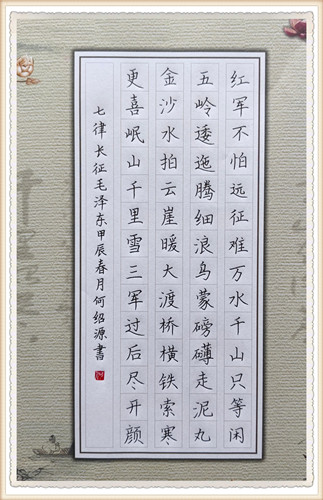 红军不怕远征难万水千山只等闲
五岭逶迤腾细浪乌蒙磅礴走泥丸
金沙水拍云崖暖大渡桥横铁索寒
更喜岷山千里雪三军过后尽开颜
七律长征毛泽东甲辰春月何绍源書